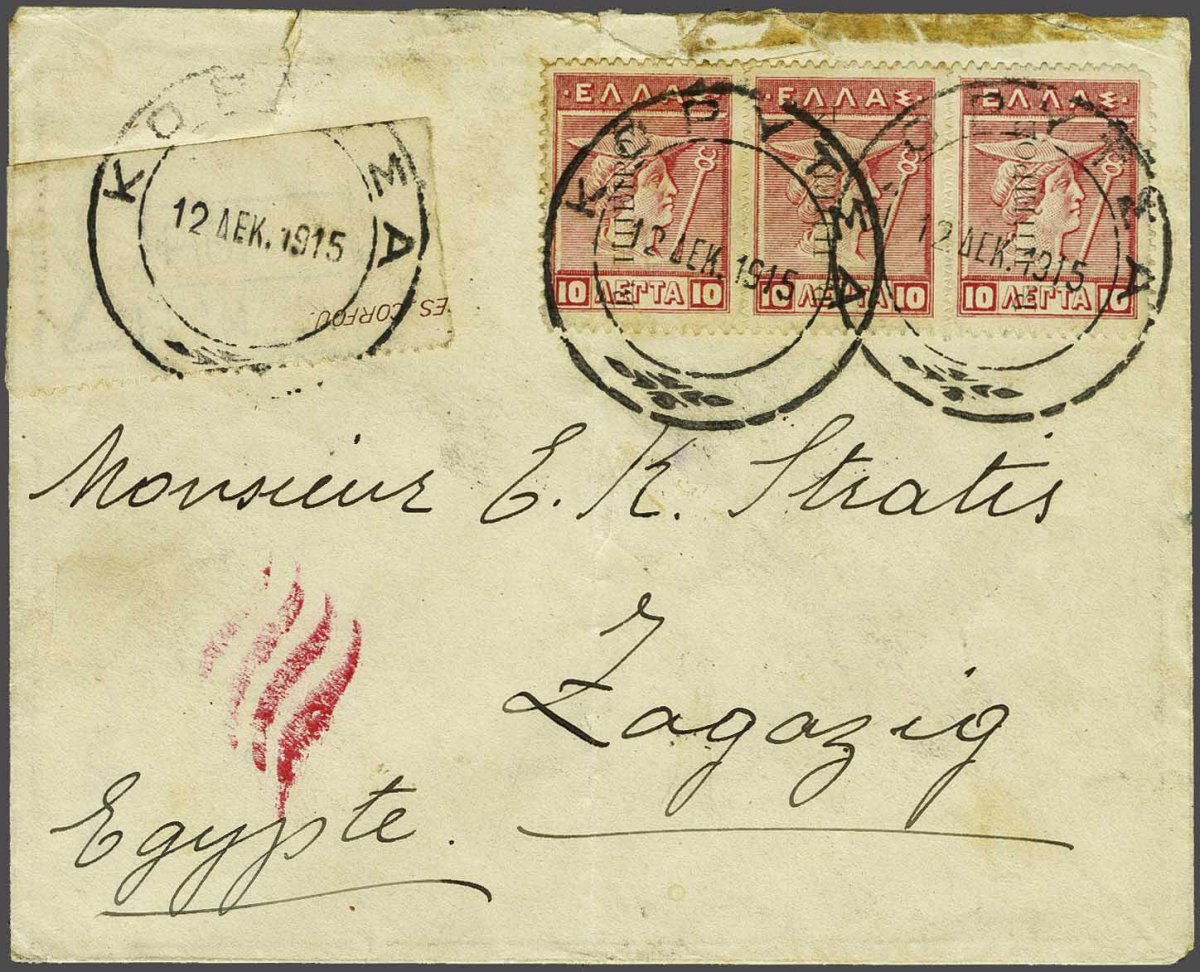 ΚΟΡΥΤΣΑ
12 ΔΕΚ. 1915
ES CORFOU.
ΕΛΛΑΣ ΕΛΛΑΣ ΕΛΛΑΣ
ΗΠΕΙΡΟΣ ΗΠΕΙΡΟΣ ΗΠΕΙΡΟΣ
10 ΛΕΠΤΑ 10 10 ΛΕΠΤΑ 10 10 ΛΕΠΤΑ 10
ΚΟΡΥΤΣΑ
12 ΔΕΚ. 1915
ΚΟΡΥΤΣΑ
12 ΔΕΚ. 1915
Monsieur E. K. Stratis
Zagazig
Egypte.